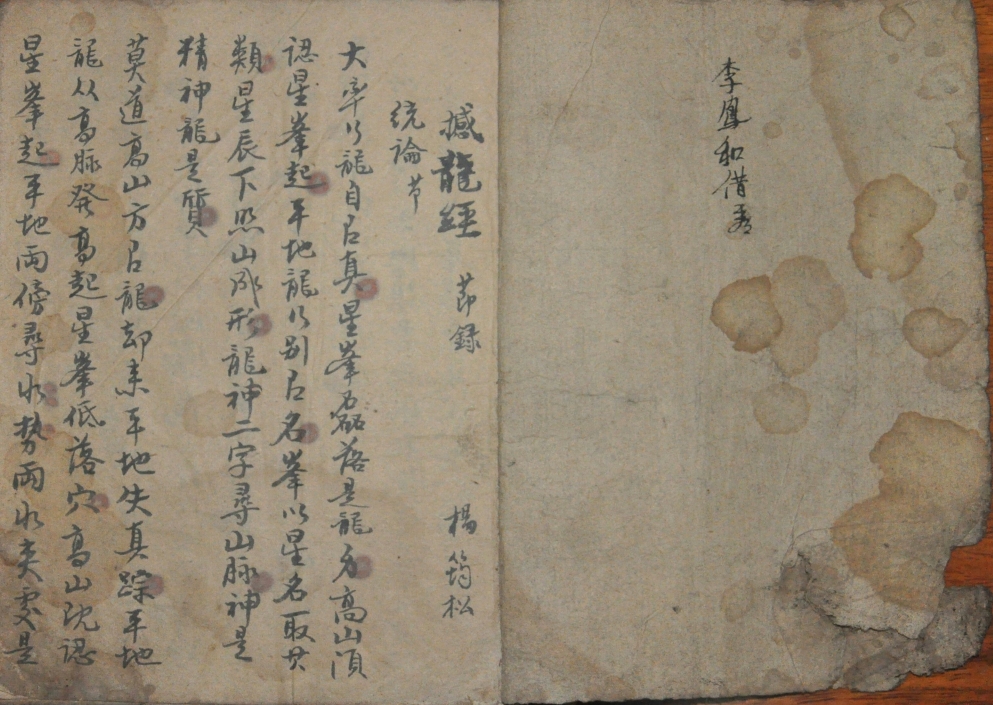 李鳳和借
撼龍經 節録 楊筠松
統論 节
大率行龍自有真星峯磊落是龍身高山須
認星峯起平地龍行别有名峯以星名取其
類星辰下照山成形龍神二字尋山脉神是
精神龍是質
莫道高山方有龍却来平地失真踪平地
龍从高脉發高起星峯低落穴高山既認
星峯起平地兩傍尋水势兩水夹處是